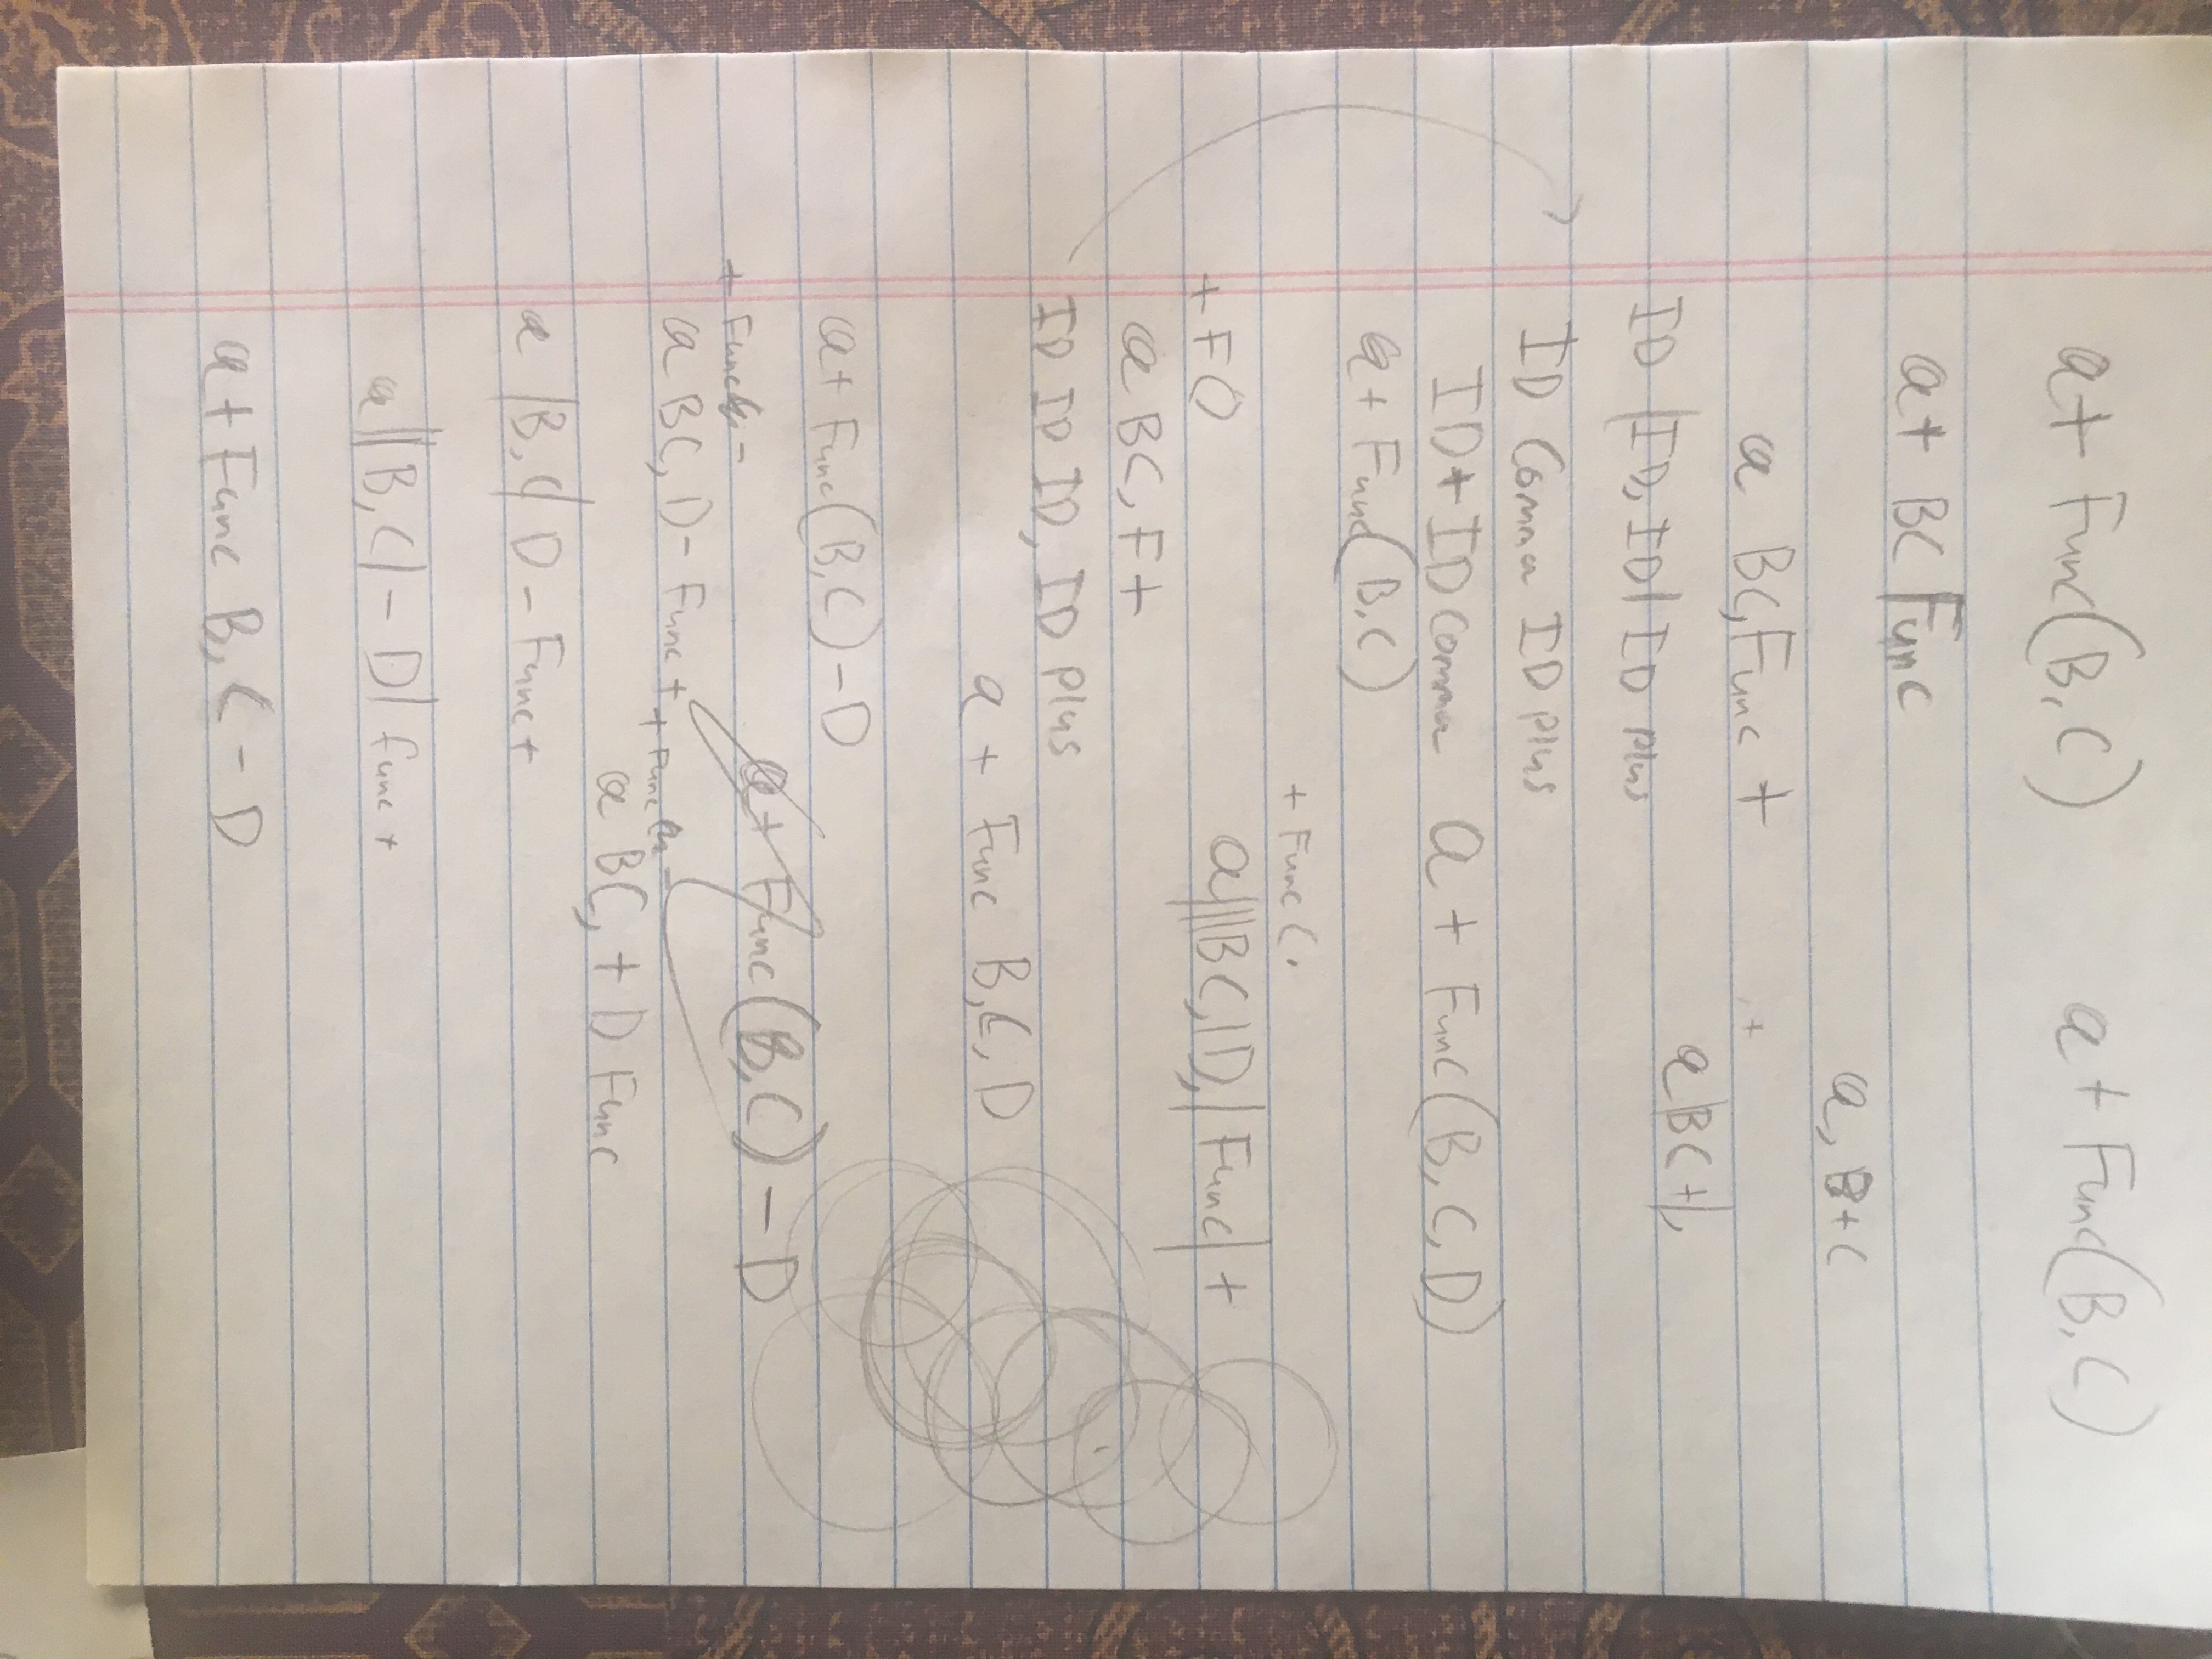 a + Func(B,C)    a + Func(B,C)
a + BC Func
a, B+C
a BC, Func +
, +
a|BC+|,
ID |ID, ID| ID plus
ID Comma ID plus
ID + ID Comma    a + Func(B,C,D)
a + Func(B,C)
+ Func(,
+ F()    a|||BC,|D,|Func|+
a BC, F+
ID ID ID, ID plus
a + Func B,C,D
a + Func(B,C) - D
a + Func(B,C) - D
+ Func
a BC, D - Func +
+ Func
a BC, + D Func
a |B,C| D - Func +
a||B,C| - D| func +
a + Func B, C - D